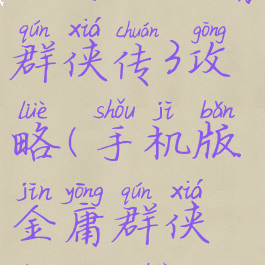 qún xiá chuán gōng
群侠传3攻
lüè shǒu jī bǎn
略(手机版
jīn yōng qún xiá
金庸群侠